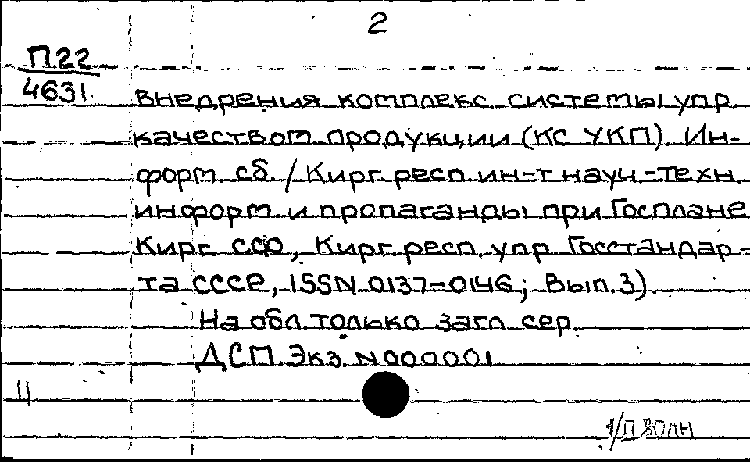 2
П22
4631.
внедрения комплекс. системы упр.
качеством продукции (КС УКП). Ин-
форм. сб. / Кирг. респ. ин-т науч.-техн.
информ. и пропаганды при Госплане
Кирг. ССР, Кирг. респ. упр. Госстандар-
та СССР, ISSN 0137-0146; Вып. 3).
На обл. только загл. сер.
ДСП. Экз. N 000001